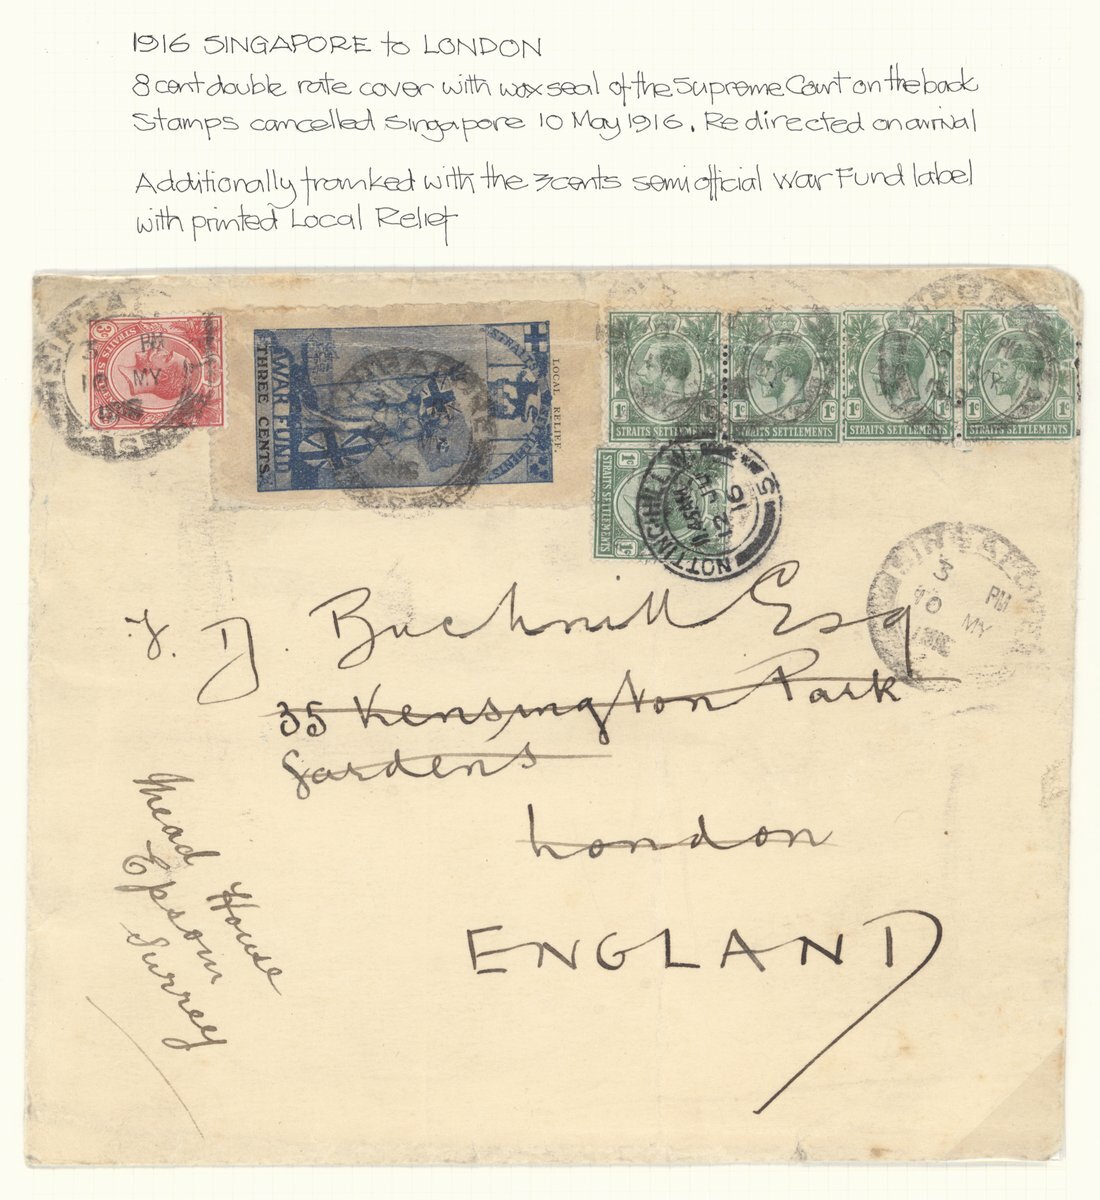 1916 SINGAPORE to LONDON
8 cent double rate cover with wax seal of the Supreme Court on the back
Stamps cancelled Singapore 10 May 1916. Redirected on arrival
Additionally franked with the 3 cents semi official War Fund label
with printed Local Relief
3 PM
10 MY
3c
STRAITS
LOCAL RELIEF.
STRAITS
SETTLEMENTS
WAR FUND
THREE CENTS
1c 1c
STRAITS SETTLEMENTS
1c 1c
STRAITS SETTLEMENTS
1c 1c
STRAITS SETTLEMENTS
1c 1c
STRAITS SETTLEMENTS
1c 1c
STRAITS SETTLEMENTS
NOTTING HILL
12 JU
16
5
SINGAPORE
3 PM
10 MY
D. Bucknill Esq
35 Kensington Park
Gardens
London
ENGLAND
Mead House
Epsom
Surrey